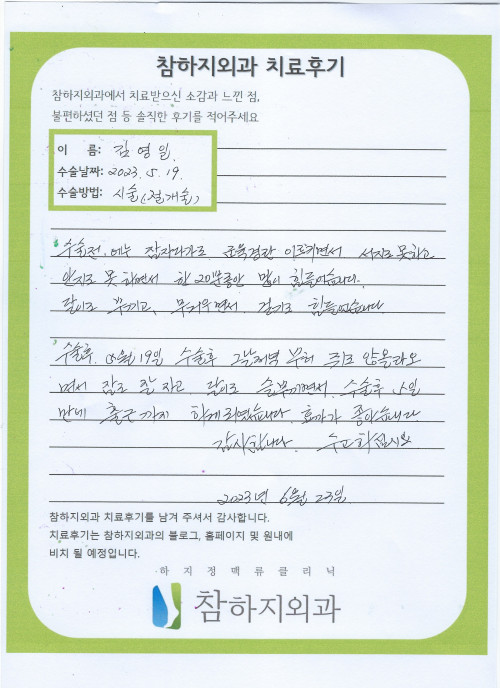 참하지외과 치료후기
참하지외과에서 치료받으신 소감과 느낀 점,
불편하셨던 점 등 솔직한 후기를 적어주세요
이 름: 김영일
수술날짜: 2023. 5. 19.
수술방법: 시술(절개술)
수술전. 에는 잠자다가도 근육경련 이르키면서 서지도 못하고
앉지도 못하면서 한 20분동안 많이 힘들었습니다.
다리도 부끼고, 무거우면서. 걷기도 힘들었습니다
수술후. 05월 19일 수술후 그날저녁 부터 쥐도 않올라오
면서 잠도 잘 자고 다리도 슬부끼면서. 수술후 5일
만에 출근까지 하게 되였습니다. 효과가 좋아습니다
감사합니다. 수고하십시오
2023년 6월 23일
참하지외과 치료후기를 남겨 주셔서 감사합니다.
치료후기는 참하지외과의 블로그, 홈페이지 및 원내에
비치 될 예정입니다.
하지정맥류클리닉
참하지외과